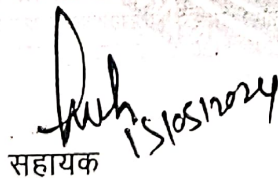 15/05/2024
सहायक